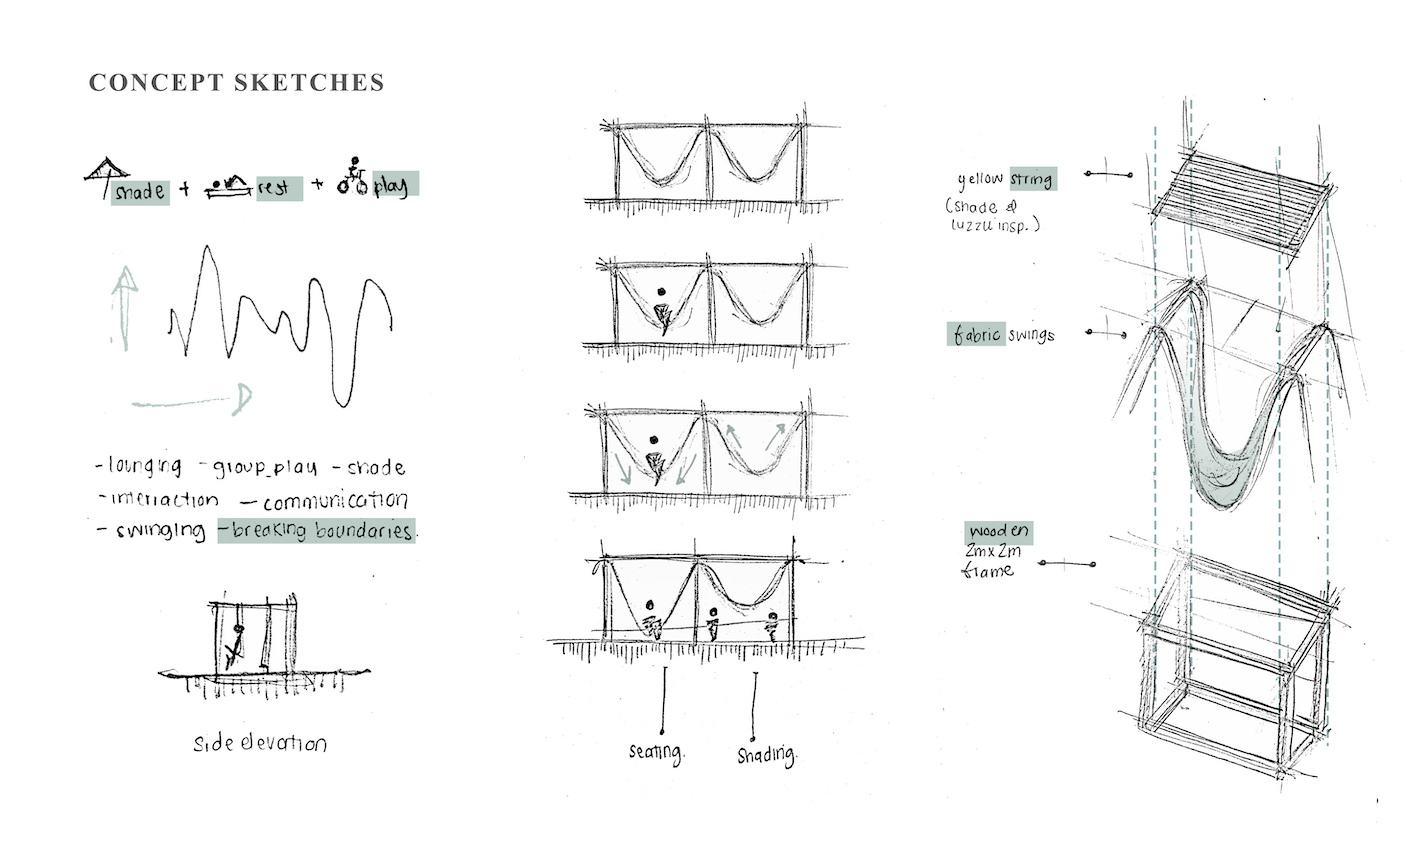 CONCEPT SKETCHES
shade + rest + play
-lounging -group play -shade
-interraction -communication
-swinging -breaking boundaries.
side elevation
seating.
shading.
yellow string
(shade &
luzzu insp.)
fabric swings
wooden
2mx2m
frame